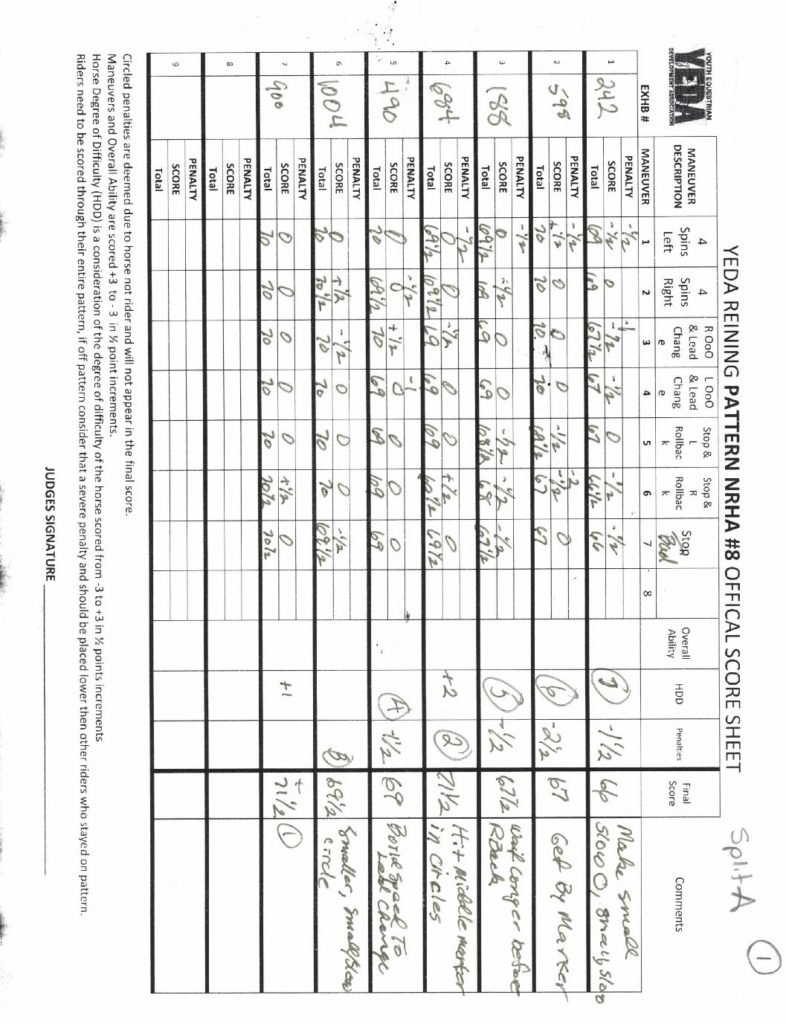 Split A
1
YOUTH EQUESTRIAN
YEDA
DEVELOPMENT ASSOCIATION
YEDA REINING PATTERN NRHA #8 OFFICAL SCORE SHEET
EXHB # MANEUVER DESCRIPTION 4 Spins Left 4 Spins Right R OoO & Lead Chang e L OoO & Lead Chang e Stop & L Rollbac k Stop & R Rollbac k Stop Overall Ability HDD Penalties Final Score Comments
MANEUVER 1 2 3 4 5 6 7 8
1 242 PENALTY -½ -1
SCORE -½ 0 -½ -½ 0 -½ -½
Total 69 69 67½ 67 67 66½ 66
7 -1½ 66 Make small slow O, small, slow
2 598 PENALTY -½ -2
SCORE +½ 0 0 0 -½ -½ 0
Total 70 70 70 70 69½ 67 67
6 -2½ 67 Get By Marker
3 188 PENALTY -½
SCORE 0 -½ 0 0 -½ -½ -½
Total 69½ 69 69 69 68½ 68 67½
5 -½ 67½ Wait longer before RBack
4 684 PENALTY -½
SCORE 0 0 -½ 0 0 +½ 0
Total 69½ 69½ 69 69 69 69½ 69½
+2 2 71½ Hit Middle marker in circles
5 490 PENALTY -½ -1
SCORE 0 0 +½ 0 0 0 0
Total 70 69½ 70 69 69 69 69
4 -1½ 69 Build Speed To Lead Change
6 1004 PENALTY
SCORE 0 +½ -½ 0 0 0 -½
Total 70 70½ 70 70 70 70 69½
3 69½ Smaller, Small slow circle
7 900 PENALTY
SCORE 0 0 0 0 0 +½ 0
Total 70 70 70 70 70 70½ 70½
+1 + 71½ 1
8 PENALTY
SCORE
Total
9 PENALTY
SCORE
Total
Circled penalties are deemed due to horse not rider and will not appear in the final score.
Maneuvers and Overall Ability are scored +3 to - 3 in ½ point increments.
Horse Degree of Difficulty (HDD) is a consideration of the degree of difficulty of the horse scored from -3 to +3 in ½ points increments
Riders need to be scored through their entire pattern, if off pattern consider that a severe penalty and should be placed lower then other riders who stayed on pattern.
JUDGES SIGNATURE